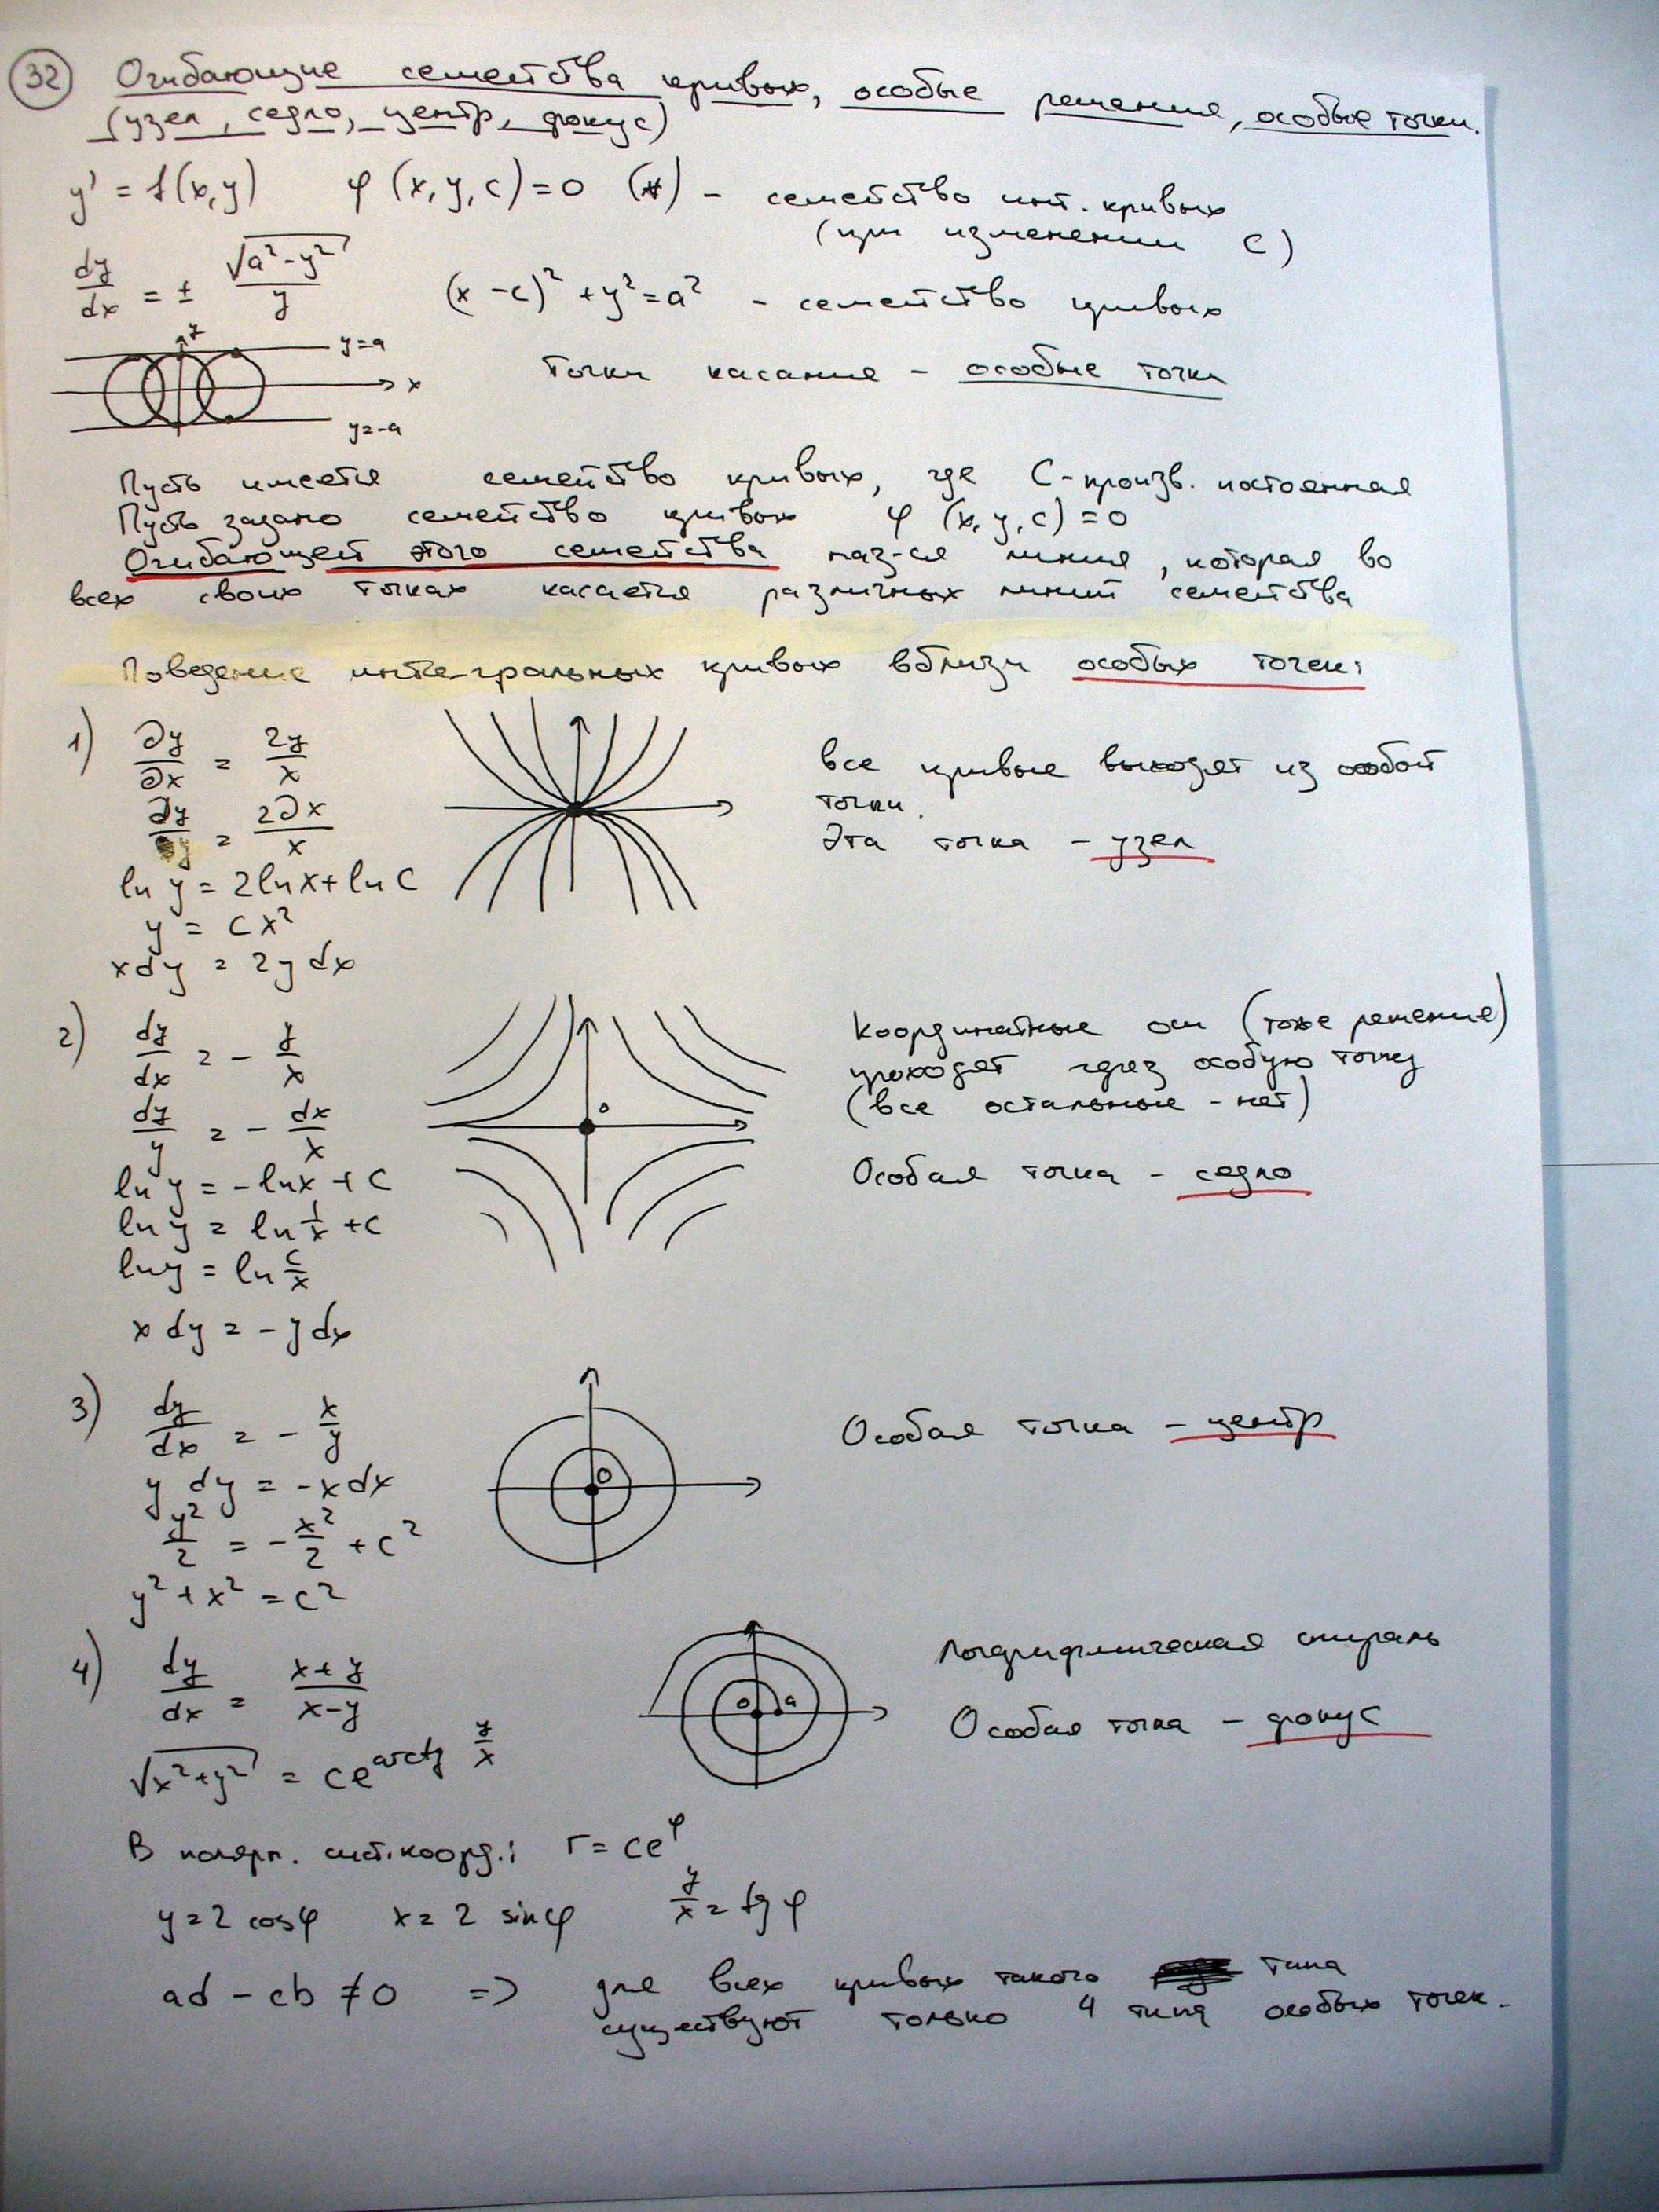 32 Огибающие семейства кривых, особые решения, особые точки.
(узел, седло, центр, фокус)
y' = f(x,y) φ (x,y,c)=0 (*) - семейство инт. кривых
(при изменении C)
dy/dx = ± √(a²-y²)/y (x-c)² + y² = a² - семейство кривых
y
y=a
x
y=-a
Точки касания - особые точки
Пусть имеется семейство кривых, где C-произв. постоянная
Пусть задано семейство кривых φ (x,y,c)=0
Огибающей этого семейства наз-ся линия, которая во
всех своих точках касается различных линий семейства
Поведение интегральных кривых вблизи особых точек:
1) ∂y/∂x = 2y/x
все кривые выходят из особой
точки.
∂y/y = 2∂x/x
Эта точка - узел
ln y = 2lnx + ln C
y = Cx²
xdy = 2y dx
2) dy/dx = - y/x
Координатные оси (тоже решение)
проходят через особую точку
(все остальные - нет)
dy/y = - dx/x
0
Особая точка - седло
ln y = -lnx + C
ln y = ln 1/x + C
lny = ln C/x
x dy = -y dx
3) dy/dx = - x/y
Особая точка - центр
y dy = -x dx
0
y²/2 = -x²/2 + c²
y² + x² = c²
4) dy/dx = x+y/x-y
Логарифмическая спираль
0 a
Особая точка - фокус
√(x²+y²) = ce^(arctg y/x)
В полярн. сист. коорд.: r = ce^φ
y=2 cosφ x=2 sinφ y/x = tg φ
ad - cb ≠ 0 => для всех кривых такого типа
существуют только 4 типа особых точек.